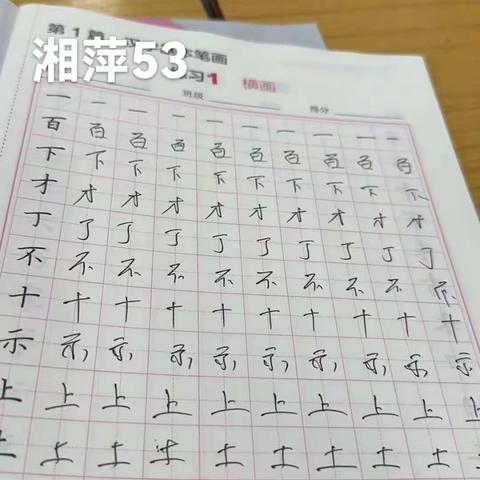 第1篇 本笔画
湘萍53
习1 横画
班级 得分
一 一 一 一 一 一 一 一 一 一
百 百 百 百 百 百 百 百 百 百
下 下 下 下 下 下 下 下 下 下
才 才 才 才 才 才 才 才 才 才
丁 丁 丁 丁 丁 丁 丁 丁 丁 丁
不 不 不 不 不 不 不 不 不 不
十 十 十 十 十 十 十 十 十 十
示 示 示 示 示 示 示 示 示 示
上 上 上 上 上 上 上 上 上 上
土 土 土 土 土 土 土 土 土 土